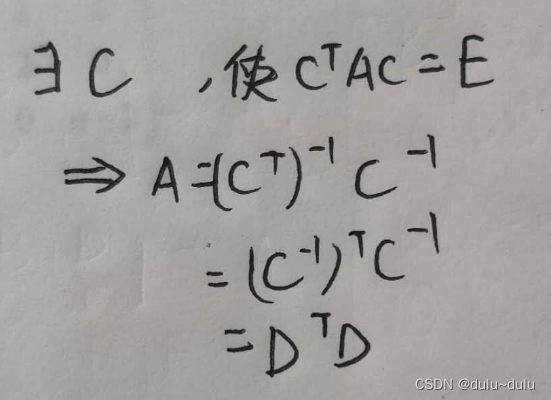 ∃ C ,使 CᵀAC = E
⇒ A=(Cᵀ)⁻¹ C⁻¹
= (C⁻¹)ᵀC⁻¹
= DᵀD
CSDN @dulu~dulu